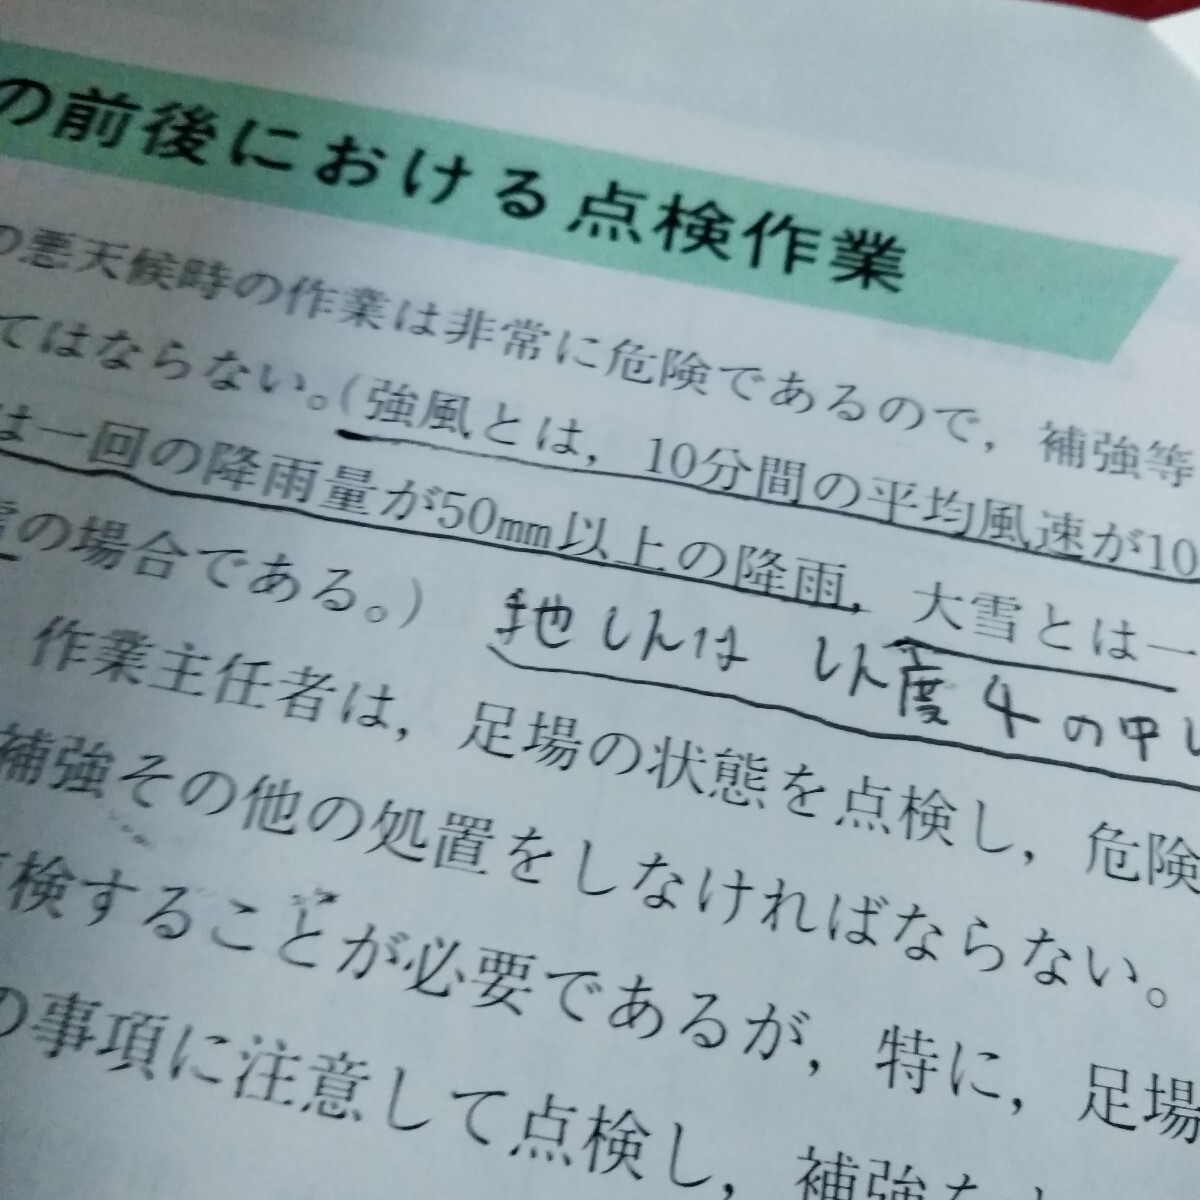 の前後における点検作業
の悪天候時の作業は非常に危険であるので，補強等
てはならない。(強風とは，10分間の平均風速が10
は一回の降雨量が50mm以上の降雨，大雪とは一
の場合である。)
地しんは しん度4の中し
作業主任者は，足場の状態を点検し，危険
補強その他の処置をしなければならない。
検することが必要であるが，特に，足場
の事項に注意して点検し，補強を